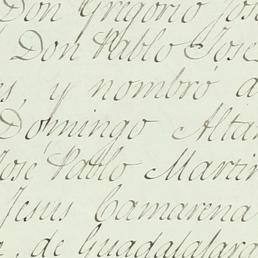 Don Gregorio José
Don Pablo José
es, y nombró a
Domingo Alta
José Pablo Martin
Jesus Camarena
a, de Guadalajara